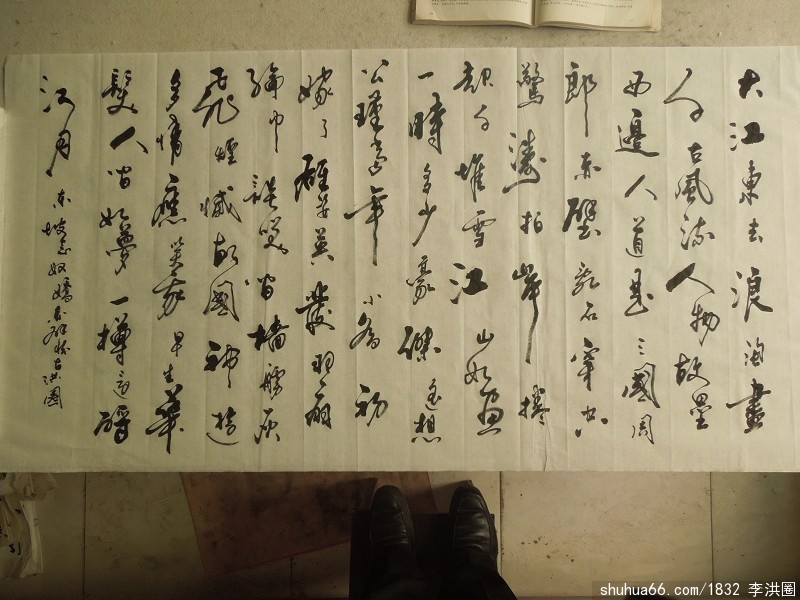 大江東去浪淘盡
千古風流人物故壘
西邊人道是三國周
郎赤壁亂石穿空
驚濤拍岸捲
起千堆雪江山如畫
一時多少豪傑遙想
公瑾當年小喬初
嫁了雄姿英發羽扇
綸巾談笑間檣艣灰
飛煙滅故國神遊
多情應笑我早生華
髮人間如夢一樽還酹
江月 東坡念奴嬌赤壁懷古洪圈
shuhua66.com/1832 李洪圈